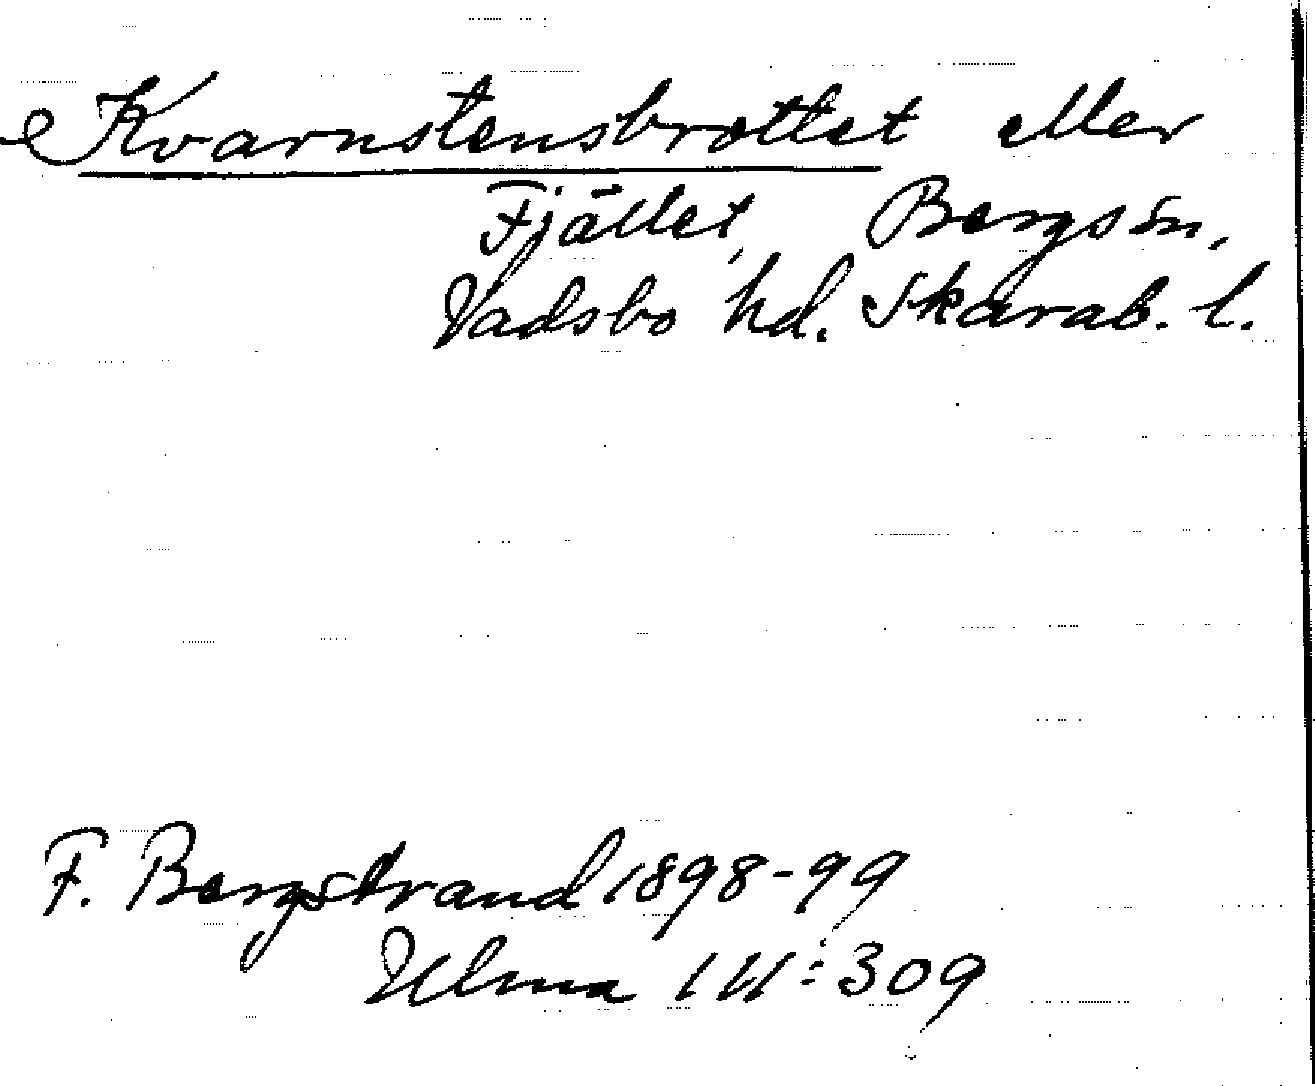 Kvarnstensbrottet eller
Fjället, Bergs sn,
Vadsbo hd. Skarab. l.
F. Bergstrand 1898-99
Ulma 111:309